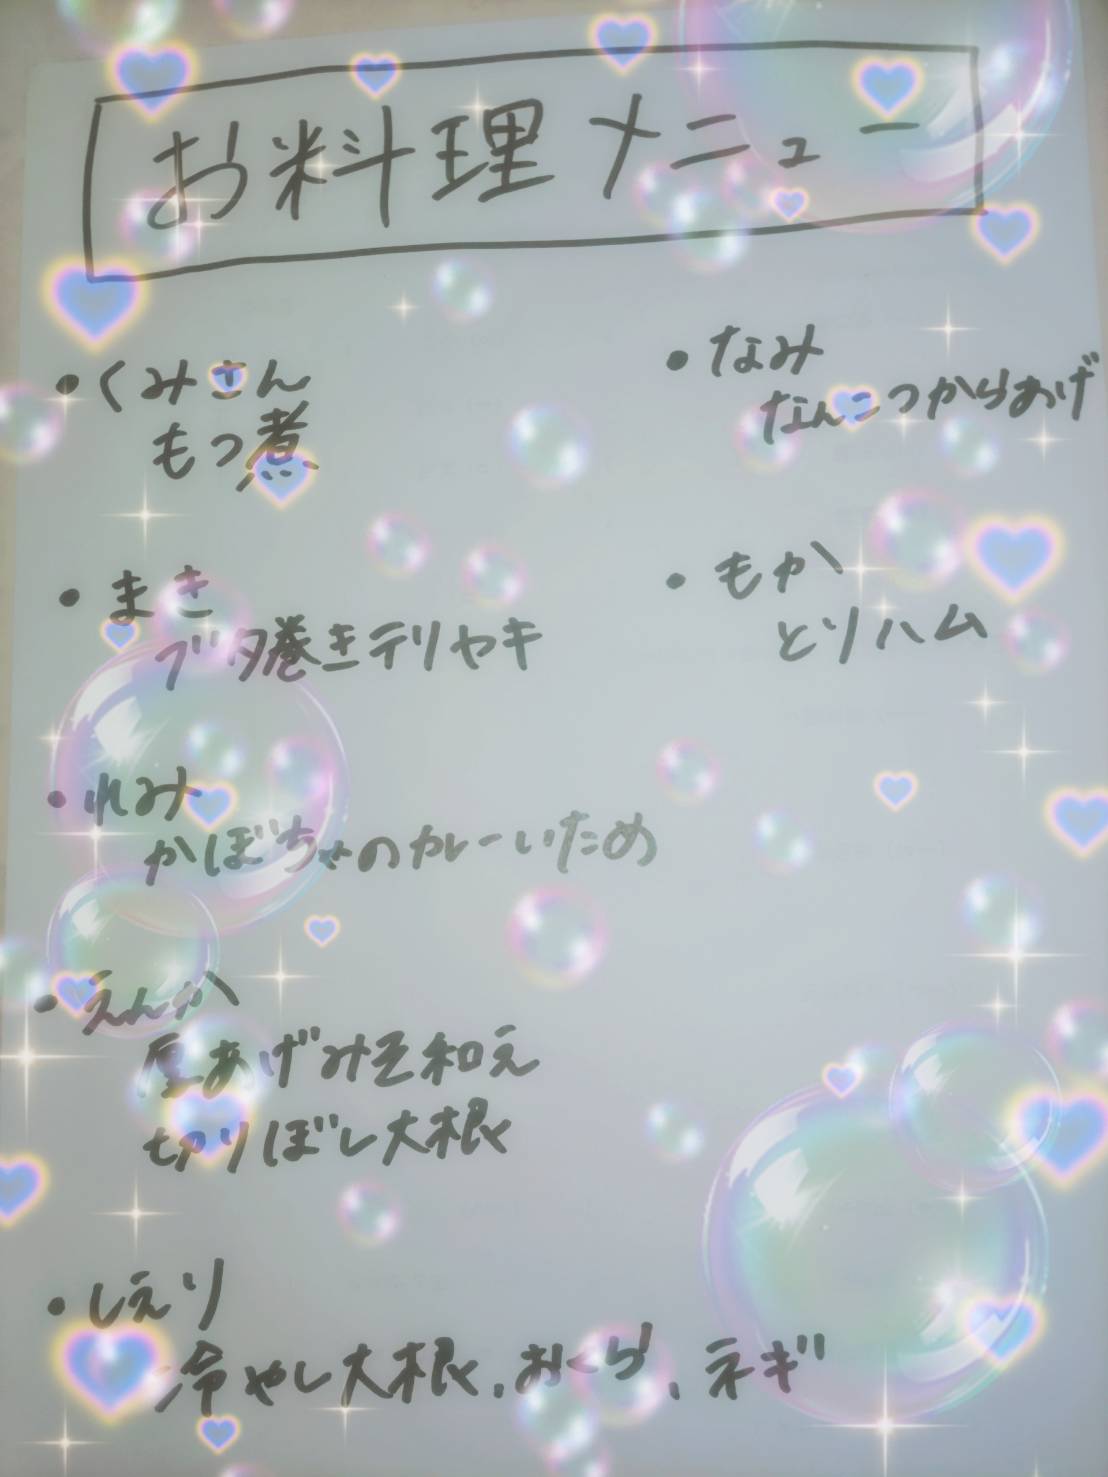 お料理メニュー
・くみさん
もつ煮
・まき
ブタ巻きテリヤキ
・れみ
かぼちゃのカレーいため
・えんか
厚あげみそ和え
切りぼし大根
・しえり
冷やし大根、おくら、ネギ
・なみ
なんこつからあげ
・もか
とりハム